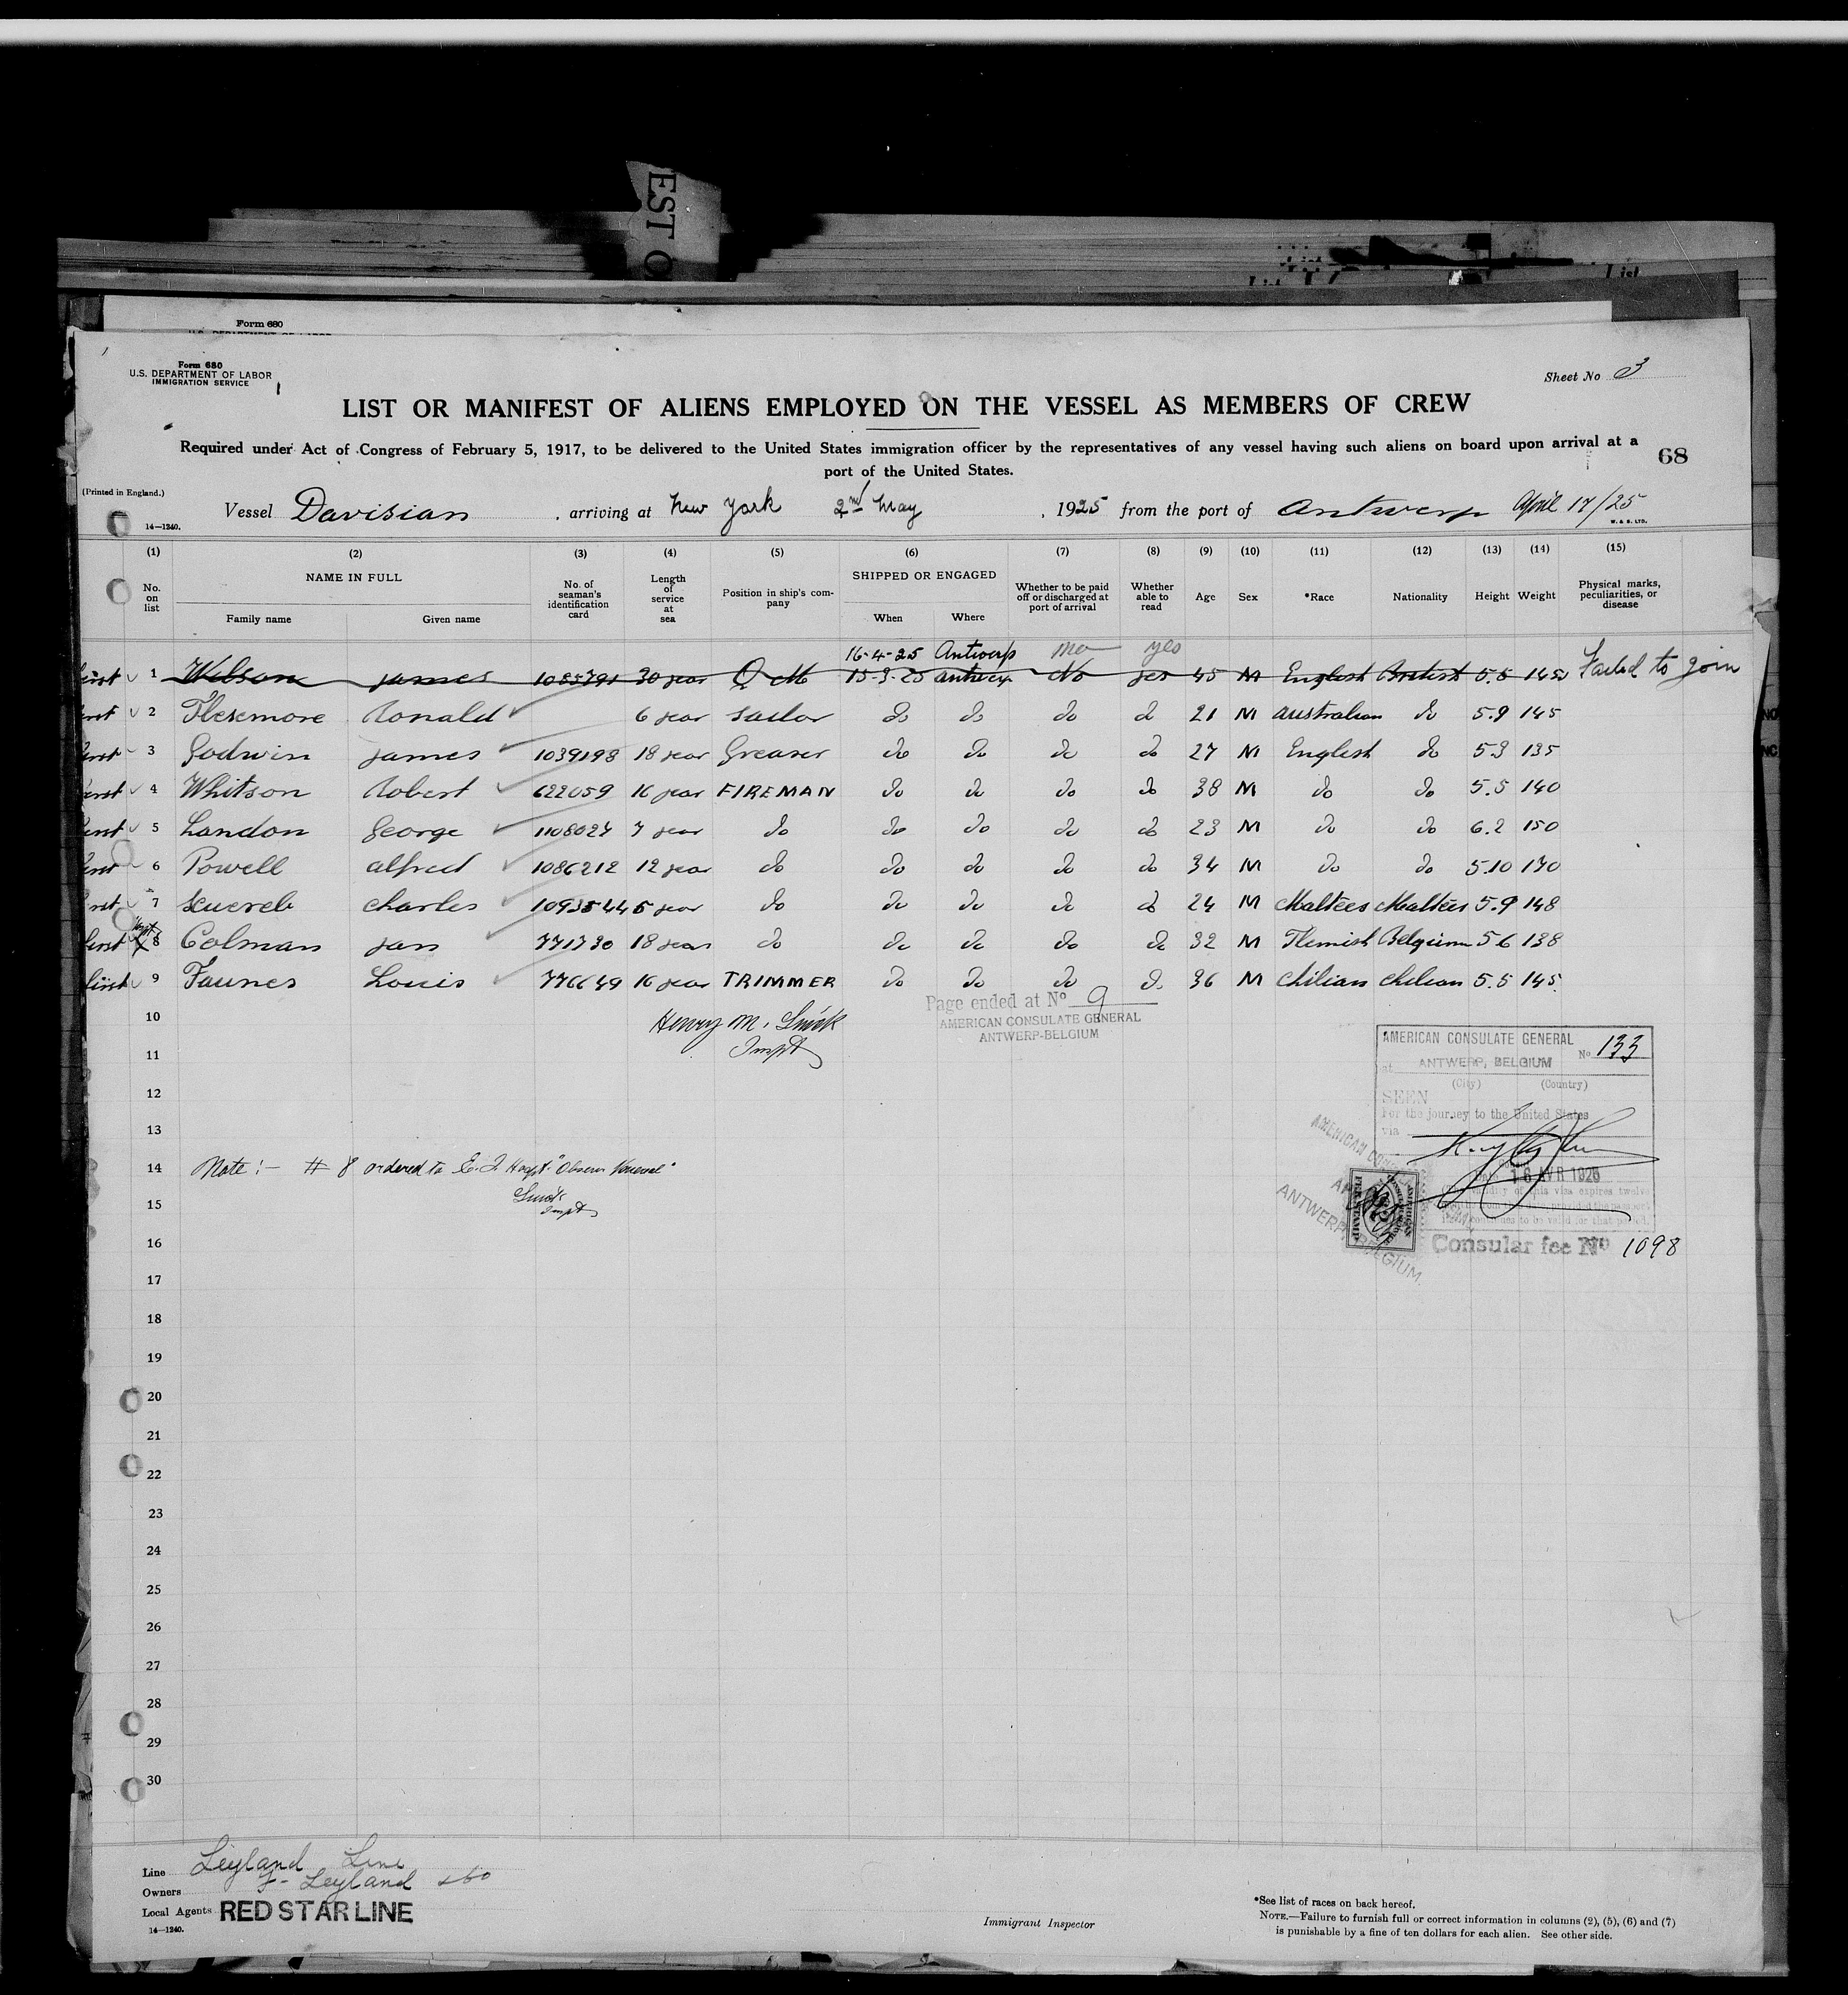 EST O
List
Form 680
Form 680
U.S. DEPARTMENT OF LABOR
IMMIGRATION SERVICE
Sheet No 3
LIST OR MANIFEST OF ALIENS EMPLOYED ON THE VESSEL AS MEMBERS OF CREW
Required under Act of Congress of February 5, 1917, to be delivered to the United States immigration officer by the representatives of any vessel having such aliens on board upon arrival at a
port of the United States.
68
(Printed in England.)
Vessel Davisian, arriving at New York 2nd May, 1925 from the port of Antwerp April 17/25
14—1240.
W. & S. LTD.
(1) (2) (3) (4) (5) (6) (7) (8) (9) (10) (11) (12) (13) (14) (15)
No. on list NAME IN FULL Family name Given name No. of seaman's identification card Length of service at sea Position in ship's company SHIPPED OR ENGAGED When Where Whether to be paid off or discharged at port of arrival Whether able to read Age Sex *Race Nationality Height Weight Physical marks, peculiarities, or disease
16-4-25 Antwerp yes
1 Wilson James 1085791 30 year Q M 15-3-25 Antwerp No yes 45 M English British 5.8 145 Failed to join
2 Ronald 6 year Sailor do do do do 21 M Australian do 5.9 145
3 Godwin James 1039198 18 year Greaser do do do do 27 M English do 5.3 135
4 Whitson Robert 622059 16 year FIREMAN do do do do 38 M do do 5.5 140
5 Landon George 1108027 7 year do do do do do 23 M do do 6.2 150
6 Powell Alfred 1086212 12 year do do do do do 34 M do do 5.10 170
7 Xuereb Charles 1093544 5 year do do do do do 24 M Maltees Maltees 5.9 148
8 Colman Jan 771730 18 year do do do do do 32 M Flemish Belgium 5 6 138
9 Faunes Louis 776649 16 year TRIMMER do do do do 36 M Chilian Chilian 5.5 145
Page ended at No 9
AMERICAN CONSULATE GENERAL
ANTWERP-BELGIUM
10 Henry M.
11
12
13
14 Note:- # 8 ordered to E. I. Hospt.
15
16
17
18
19
20
21
22
23
24
25
26
27
28
29
30
AMERICAN CONSULATE GENERAL
No 133
at ANTWERP, BELGIUM
(City) (Country)
SEEN
For the journey to the United States
via
Consular fee No 1098
Line Leyland Line
Owners F. Leyland & Co
Local Agents RED STAR LINE
14—1240.
Immigrant Inspector
*See list of races on back hereof.
NOTE.—Failure to furnish full or correct information in columns (2), (5), (6) and (7)
is punishable by a fine of ten dollars for each alien. See other side.